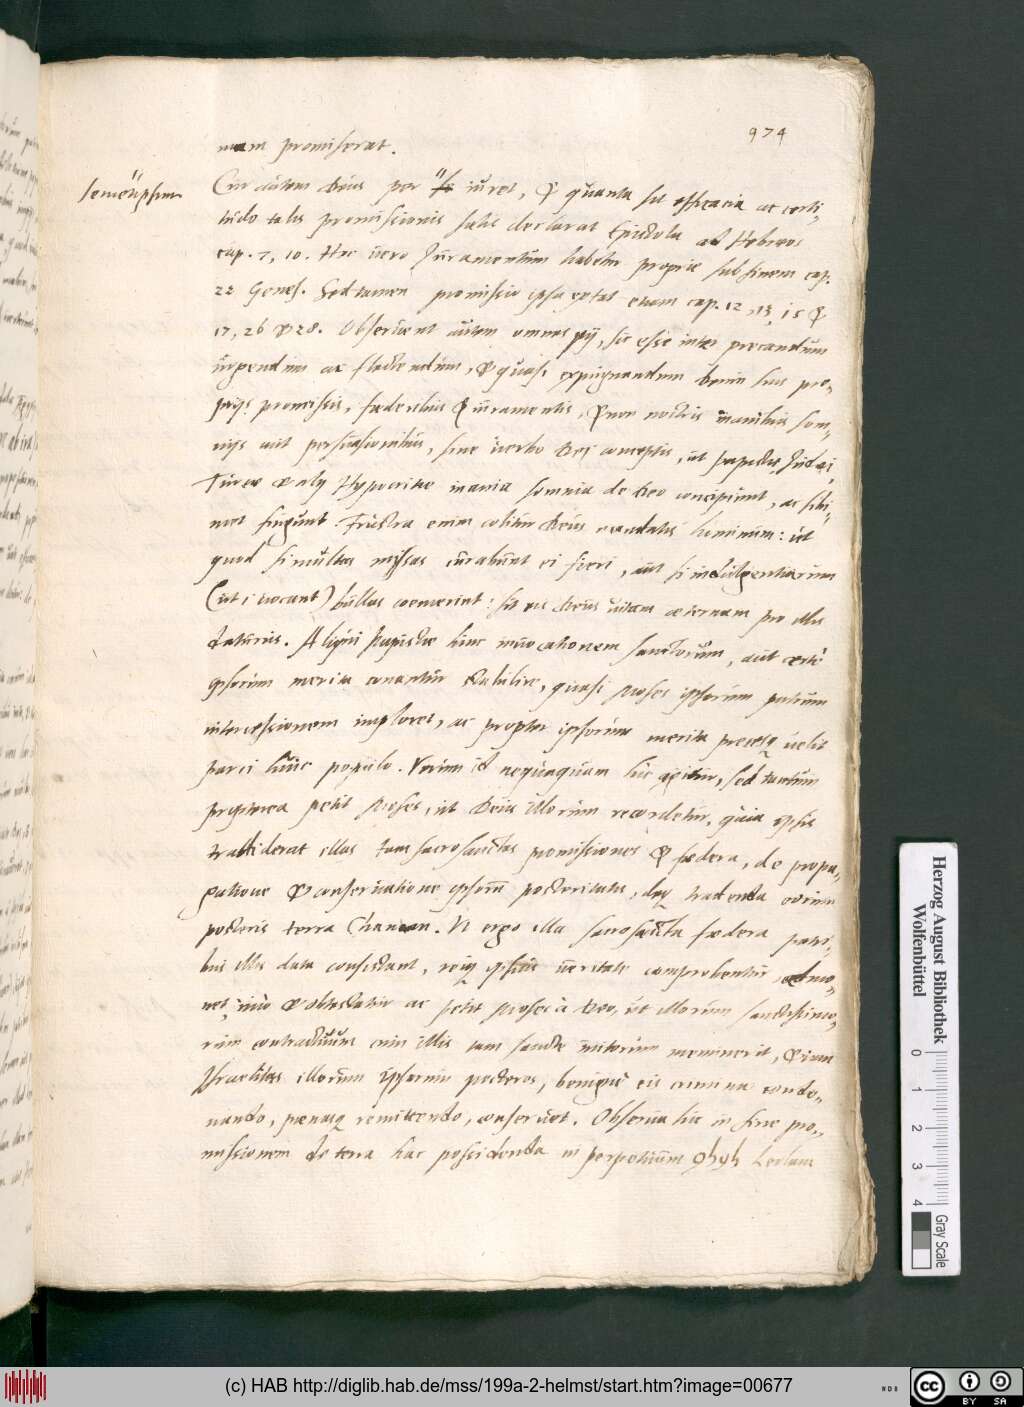 974
mam promiserat.
semetipsum
Cur autem Deus per se iuret, & quanta sit efficacia ac certi-
tudo talis promissionis satis declarat Epistola ad Hebreos
cap. 7, 10. Hic uero Iuramentum habetur proprie sub finem cap.
22 Genes. Sed tamen promissio ipsa extat etiam cap. 12, 13, 15 &
17, 26 & 28. Obseruent autem omnes pij, sic esse inter precandum
urgendum ac flectendum, & quasi expugnandum Deum suis pro-
prijs promissis, fœderibus & iuramentis, & non nostris inanibus som-
nijs aut persuasionibus, sine uerbo Dei conceptis, ut papistæ Iudæi,
Turcæ & alij Hypocritæ inania somnia de Deo concipiunt, ac sibi-
met fingunt. Frustra enim colitur Deus mandatis hominum: ut
quod si multas missas curabunt ei fieri, aut si indulgentiarum
(ut uocant) bullas coemerint: sit eis Deus uitam æternam pro illis
daturus. Aliqui papistæ hinc inuocationem sanctorum, aut certè
ipsorum merita conantur stabilire, quasi Moses ipsorum patrum
intercessionem imploret, ac propter ipsorum merita precesq uelit
parci huic populo. Verum id nequaquam hic agitur, sed tantum
propterea petit Moses, ut Deus illorum recordetur, quia ipsis
tradiderat illas tam sacrosanctas promissiones & fœdera, de propa-
gatione & conseruatione ipsorum posteritatis, deq tradenda eorum
posteris terra Chanaan. Vt ergo illa sacrosancta fœdera patri-
bus illis data consistant, reiq ipsius ueritate comprobentur, admo-
net, imo & obtestatur ac petit Moses à Deo, ut illorum sanctissimo-
rum contractuum cum illis tam sancte initorum meminerit, & iam
Israelitas illorum ipsorum posteros, benignè eis crimina condo-
nando, pœnasq remittendo, conseruet. Obserua hic in fine pro-
missionem de terra hac possidenda in perpetuum